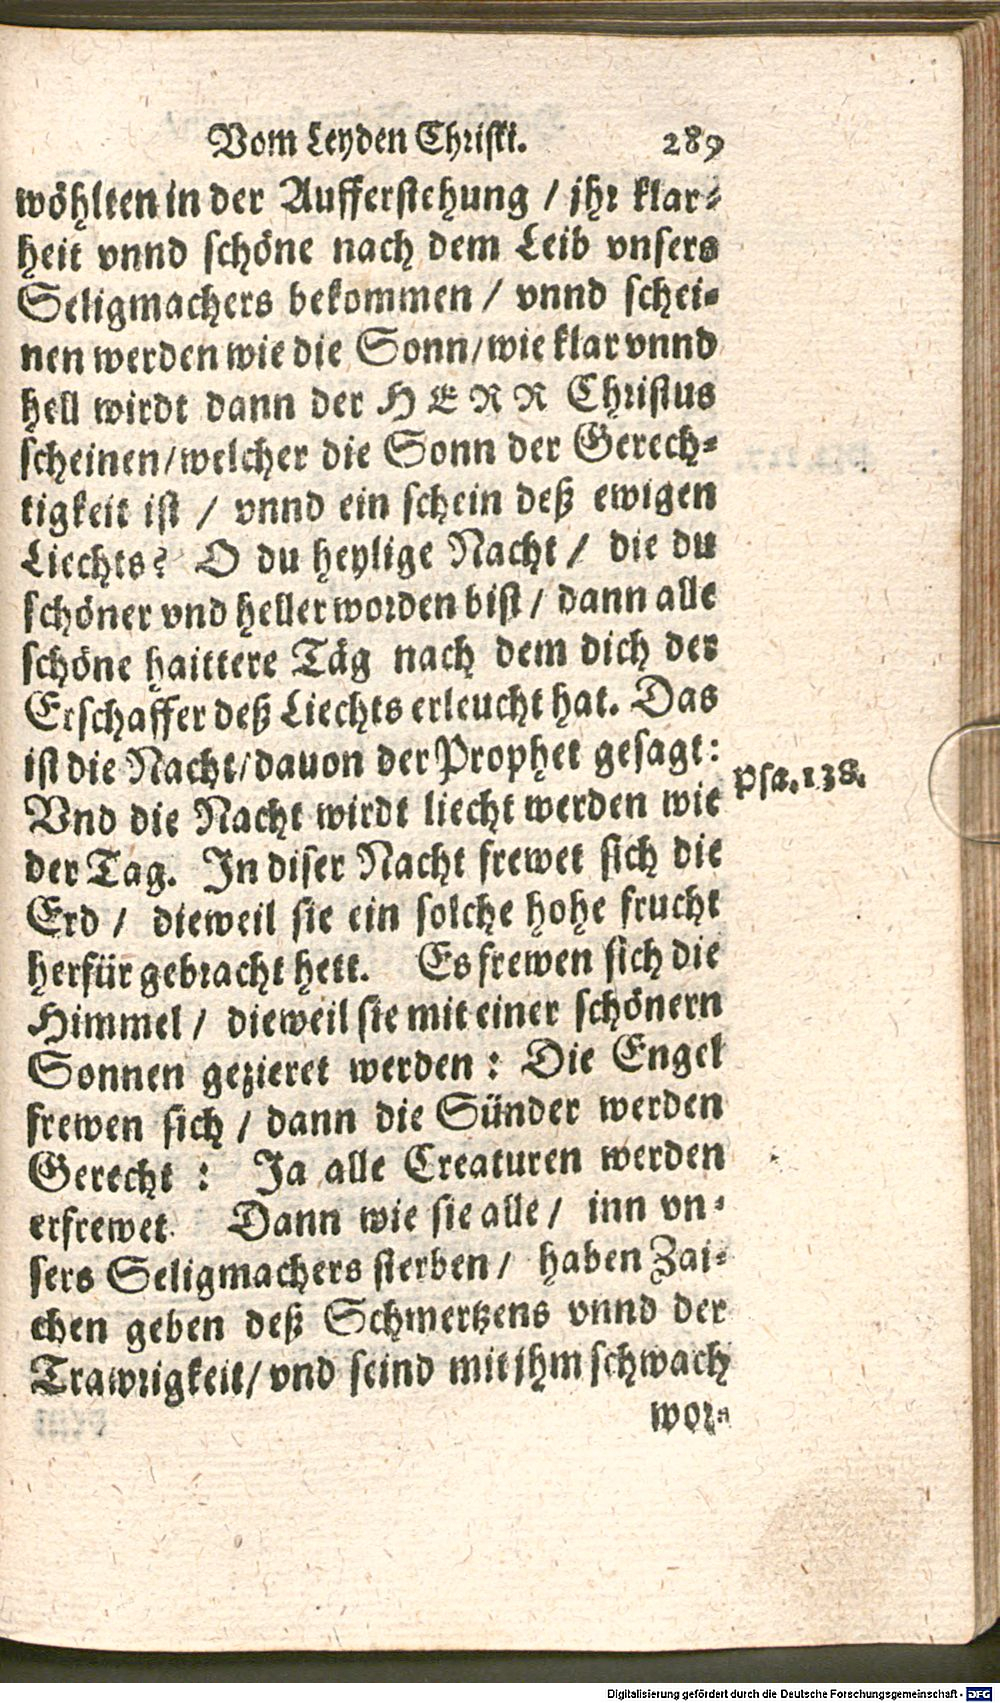 Vom Leyden Christi. 289
wöhlten in der Aufferstehung / jhr klar-
heit vnnd schöne nach dem Leib vnsers
Seligmachers bekommen / vnnd schei-
nen werden wie die Sonn/wie klar vnnd
hell wirdt dann der HERR Christus
scheinen/welcher die Sonn der Gerech-
tigkeit ist / vnnd ein schein deß ewigen
Liechts? O du heylige Nacht / die du
schöner vnd heller worden bist / dann alle
schöne haittere Täg nach dem dich der
Erschaffer deß Liechts erleucht hat. Das
ist die Nacht/dauon der Prophet gesagt:
Psa. 138.
Vnd die Nacht wirdt liecht werden wie
der Tag. In diser Nacht frewet sich die
Erd / dieweil sie ein solche hohe frucht
herfür gebracht hett. Es frewen sich die
Himmel / dieweil sie mit einer schönern
Sonnen gezieret werden : Die Engel
frewen sich / dann die Sünder werden
Gerecht : Ja alle Creaturen werden
erfrewet. Dann wie sie alle / inn vn-
sers Seligmachers sterben / haben Zai-
chen geben deß Schmertzens vnnd der
Trawrigkeit/ vnd seind mit jhm schwach
wor-
Digitalisierung gefördert durch die Deutsche Forschungsgemeinschaft - DFG